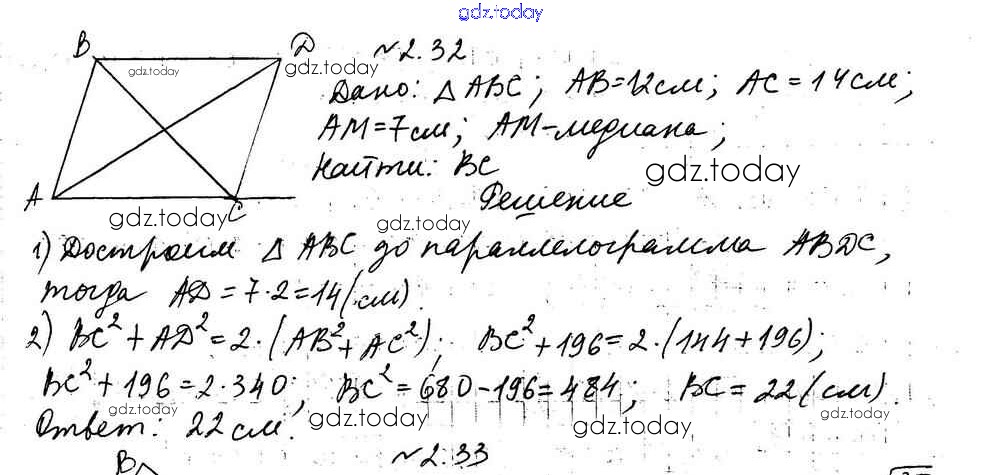 gdz.today
B D N 2.32
gdz.today gdz.today
Дано: △ ABC; AB=12см; AC=14см;
AM=7см; AM-медиана;
Найти: BC
gdz.today
A C Решение
gdz.today gdz.today
1) Достроим △ ABC до параллелограмма ABDC,
тогда AD=7·2=14(см).
gdz.today gdz.today
2) BC²+AD²=2·(AB²+AC²); BC²+196=2·(144+196);
BC²+196=2·340; BC²=680-196=484; BC=22(см).
gdz.today gdz.today gdz.today gdz.today
Ответ: 22см.
B N 2.33